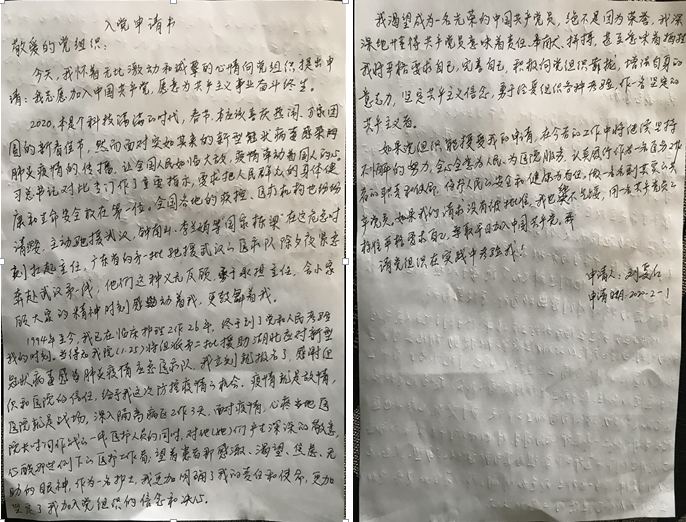 入党申请书
敬爱的党组织：
今天，我怀着无比激动和诚挚的心情向党组织提出申
请：我志愿加入中国共产党，愿意为共产主义事业奋斗终生。
2020，本是个科技满满的时代，春节，本应该喜庆热闹、万家团
圆的新春佳节，然而面对突如其来的新型冠状病毒感染的
肺炎疫情的传播，让全国人民如临大敌，疫情牵动着国人的心。
习总书记对此专门作了重要指示，要求把人民群众的身体健
康和生命安全放在第一位。全国各地的医护、医疗机构也纷纷
请缨，主动驰援武汉，钟南山、李兰娟等国家栋梁，在这危急时
刻扛起主任，广东省的第一批驰援武汉的医疗队除夕夜紧急
奔赴武汉第一线，他们这种义无反顾，勇于承担主任，舍小家
顾大家的精神时刻感动着我，更鼓舞着我。
1994年至今，我已在临床护理工作26年，终于到了党和人民考验
我的时刻。当得知我院(1.25)将组派第二批援助湖北应对新型
冠状病毒感染肺炎疫情应急医疗队，我立刻就报名了，感谢组
织和医院的信任，给予我这次防控疫情的机会。疫情就是敌情，
医院就是战场，深入隔离病区工作3天，面对疫情，心疼当地医
院长时间作战的一线医护人员的同时，对他(她)们产生深深的敬意，
助的眼神，作为一名护士，我更加明确了我的责任和使命，更加
坚定了我加入党组织的信念和决心。
我渴望成为一名光荣的中国共产党员，绝不是因为荣誉，我深
深地懂得共产党员意味着责任、奉献、拼搏，甚至意味着牺牲
我将严格要求自己，完善自己，积极向党组织靠拢，增强自身的
意志力，坚定共产主义信念，勇于经受组织各种考验，作一名坚定的
共产主义者。
如果党组织能接受我的申请，在今后的工作中将继续坚持
不懈的努力，全心全意为人民、为医院服务，认真履行作为一名医务工作
者的职责和使命，守护人民的安全和健康为己任，做一名名副其实的共
产党员。如果我的请求没有被批准，我也决不气馁，用一名共产党员的
标准严格要求自己，争取早日加入中国共产党。
请党组织在实践中考验我！
申请人：
申请时间：2020-2-1